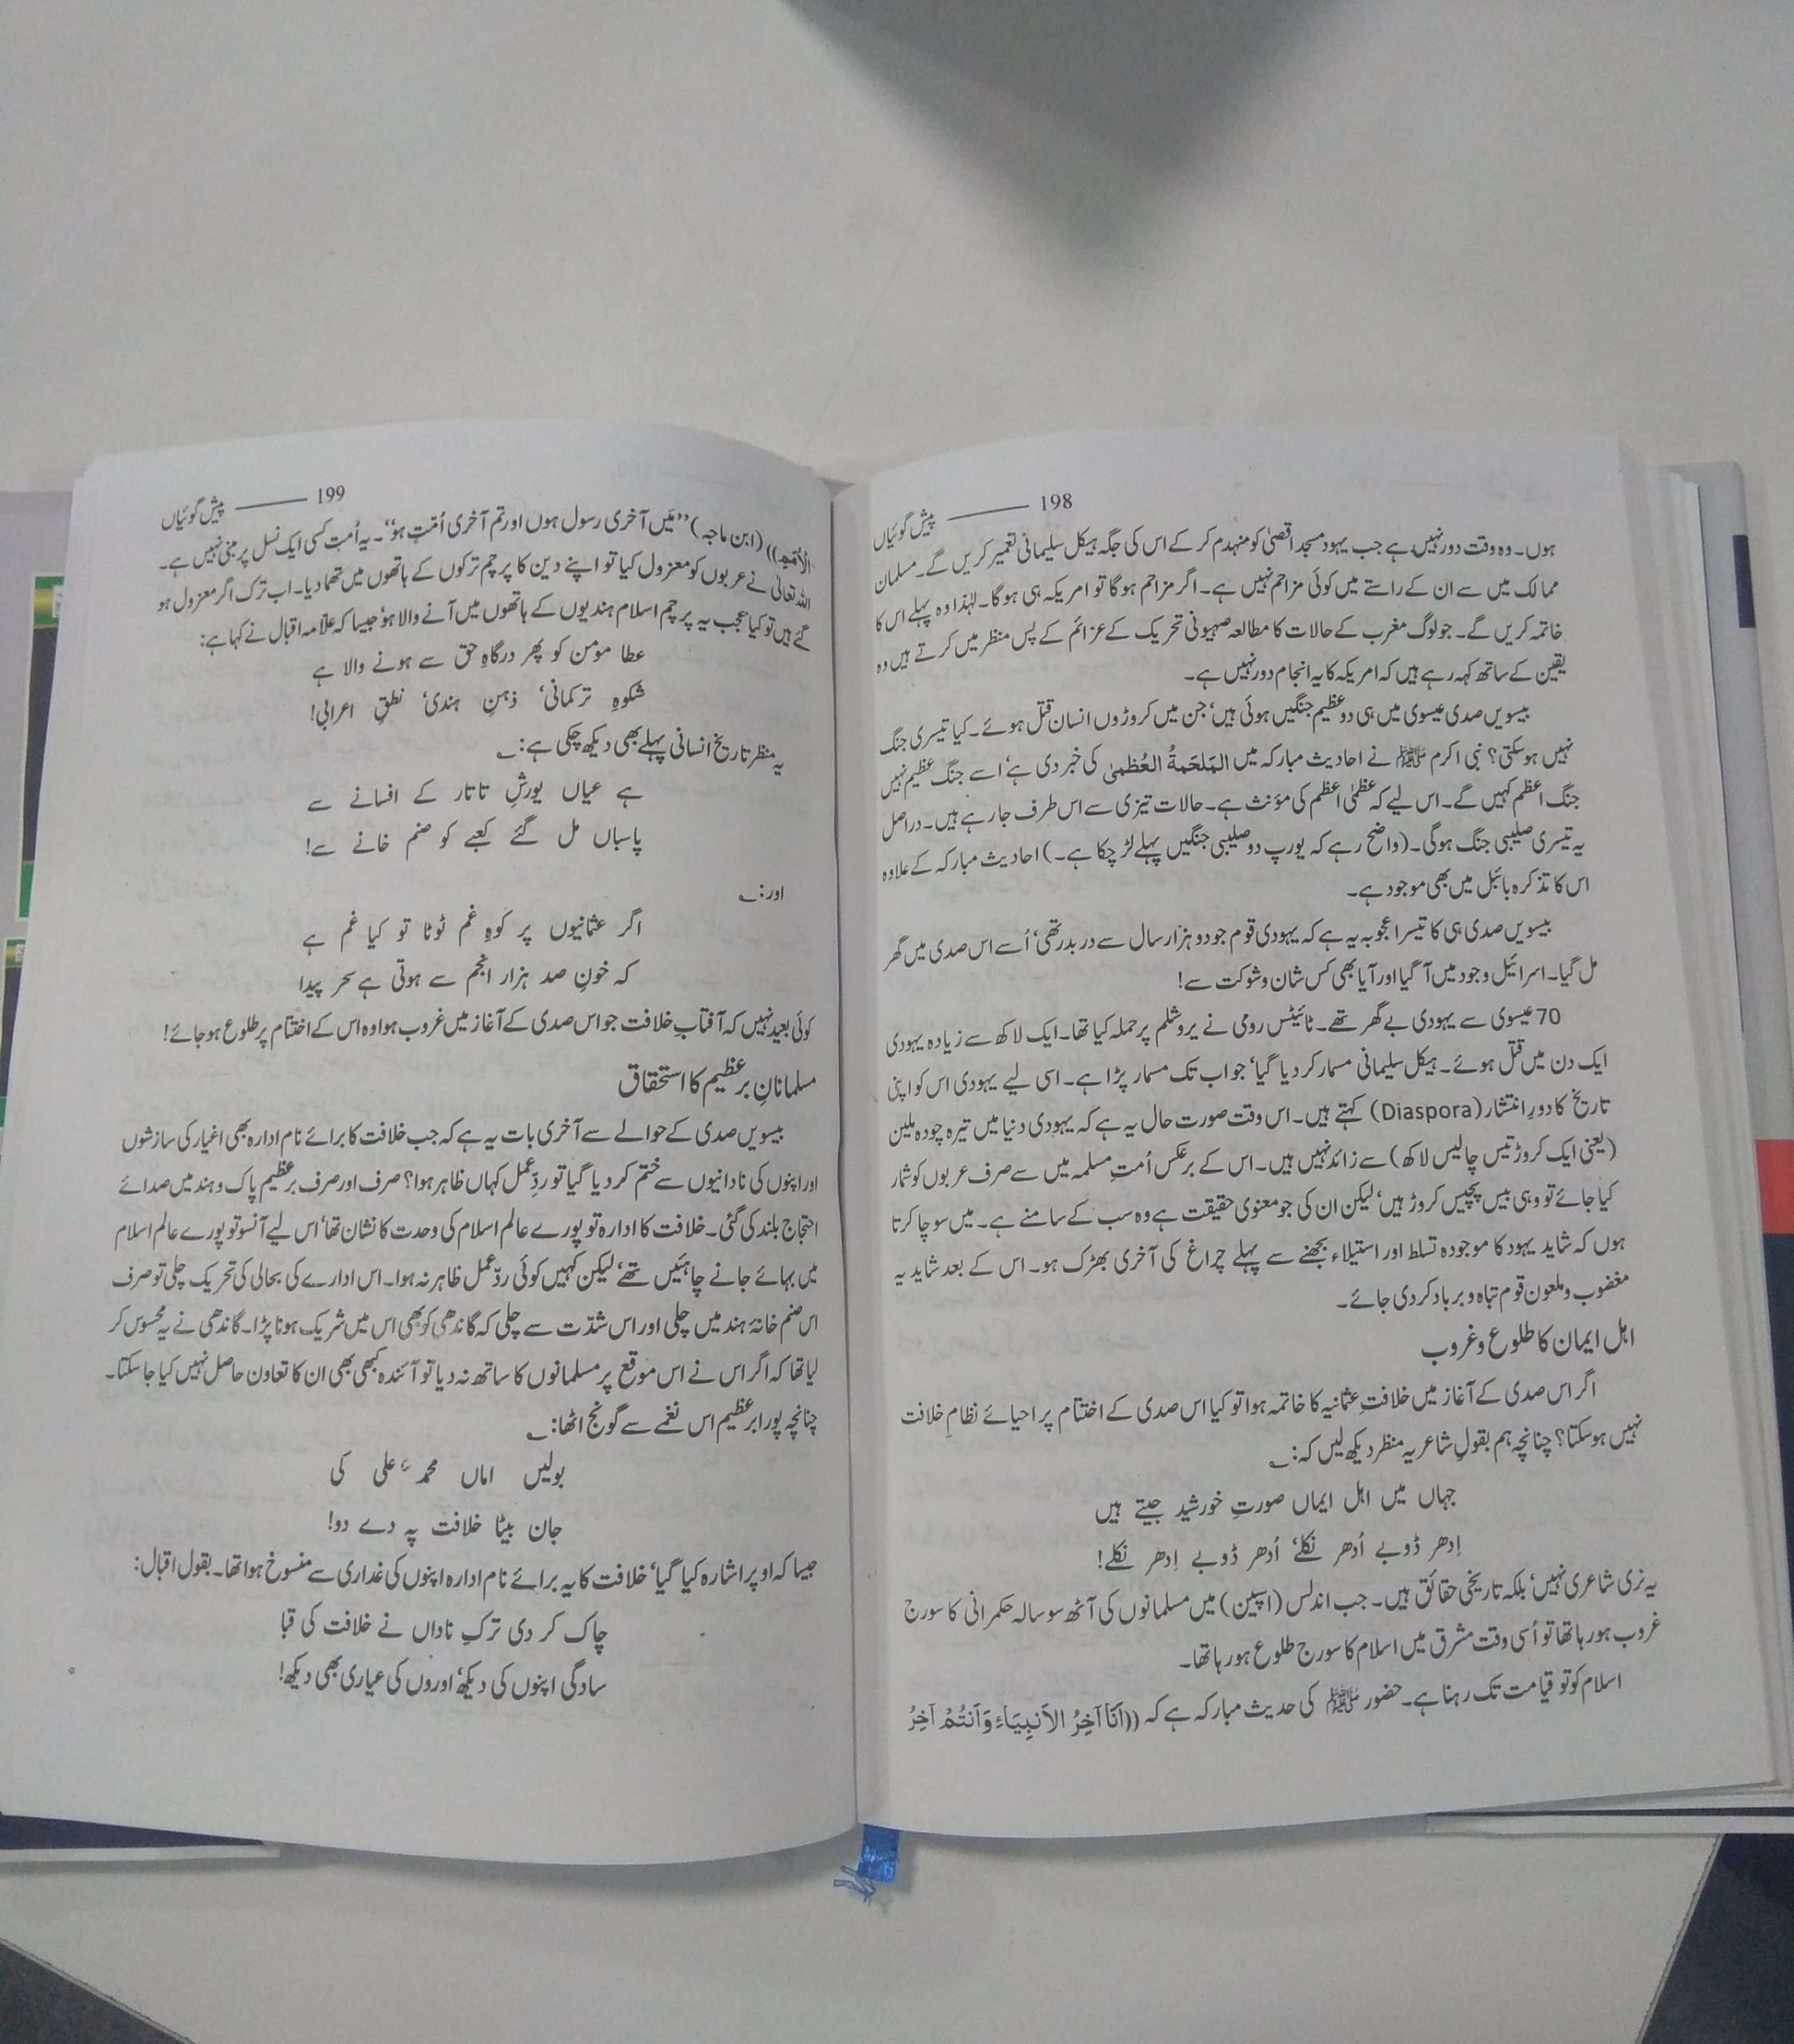 198 پیش گوئیاں
ہوں۔ وہ وقت دور نہیں ہے جب یہود مسجد اقصیٰ کو منہدم کر کے اس کی جگہ ہیکل سلیمانی تعمیر کریں گے۔ مسلمان
ممالک میں سے ان کے راستے میں کوئی مزاحم نہیں ہے۔ اگر مزاحم ہوگا تو امریکہ ہی ہوگا۔ لہٰذا وہ پہلے اس کا
خاتمہ کریں گے۔ جو لوگ مغرب کے حالات کا مطالعہ صہیونی تحریک کے عزائم کے پس منظر میں کرتے ہیں وہ
یقین کے ساتھ کہہ رہے ہیں کہ امریکہ کا یہ انجام دور نہیں ہے۔
بیسویں صدی عیسوی میں ہی دو عظیم جنگیں ہوئی ہیں‘ جن میں کروڑوں انسان قتل ہوئے۔ کیا تیسری جنگ
نہیں ہو سکتی؟ نبی اکرم ﷺ نے احادیث مبارکہ میں المَلحَمةُ العُظمیٰ کی خبر دی ہے‘ اسے جنگ عظیم نہیں
جنگ اعظم کہیں گے۔ اس لیے کہ عظمیٰ اعظم کی مؤنث ہے۔ حالات تیزی سے اس طرف جا رہے ہیں۔ دراصل
یہ تیسری صلیبی جنگ ہوگی۔ (واضح رہے کہ یورپ دو صلیبی جنگیں پہلے لڑ چکا ہے۔) احادیث مبارکہ کے علاوہ
اس کا تذکرہ بائبل میں بھی موجود ہے۔
بیسویں صدی ہی کا تیسرا عجوبہ یہ ہے کہ یہودی قوم جو دو ہزار سال سے در بدر تھی‘ اُسے اس صدی میں گھر
مل گیا۔ اسرائیل وجود میں آ گیا اور آیا بھی کس شان و شوکت سے!
70 عیسوی سے یہودی بے گھر تھے۔ ٹائیٹس رومی نے یروشلم پر حملہ کیا تھا۔ ایک لاکھ سے زیادہ یہودی
ایک دن میں قتل ہوئے۔ ہیکل سلیمانی مسمار کر دیا گیا‘ جو اب تک مسمار پڑا ہے۔ اسی لیے یہودی اس کو اپنی
تاریخ کا دورِ انتشار (Diaspora) کہتے ہیں۔ اس وقت صورت حال یہ ہے کہ یہودی دنیا میں تیرہ چودہ ملین
(یعنی ایک کروڑ تیس چالیس لاکھ) سے زائد نہیں ہیں۔ اس کے برعکس اُمتِ مسلمہ میں سے صرف عربوں کو شمار
کیا جائے تو وہی بیس پچیس کروڑ ہیں‘ لیکن ان کی جو معنوی حقیقت ہے وہ سب کے سامنے ہے۔ میں سوچا کرتا
ہوں کہ شاید یہود کا موجودہ تسلط اور استیلاء بجھنے سے پہلے چراغ کی آخری بھڑک ہو۔ اس کے بعد شاید یہ
مغضوب و ملعون قوم تباہ و برباد کر دی جائے۔
اہل ایمان کا طلوع و غروب
اگر اس صدی کے آغاز میں خلافتِ عثمانیہ کا خاتمہ ہوا تو کیا اس صدی کے اختتام پر احیائے نظامِ خلافت
نہیں ہو سکتا؟ چنانچہ ہم بقولِ شاعر یہ منظر دیکھ لیں کہ: ؂
جہاں میں اہل ایماں صورتِ خورشید جیتے ہیں
اِدھر ڈوبے اُدھر نکلے‘ اُدھر ڈوبے اِدھر نکلے!
یہ نری شاعری نہیں‘ بلکہ تاریخی حقائق ہیں۔ جب اندلس (اسپین) میں مسلمانوں کی آٹھ سو سالہ حکمرانی کا سورج
غروب ہو رہا تھا تو اُسی وقت مشرق میں اسلام کا سورج طلوع ہو رہا تھا۔
اسلام کو تو قیامت تک رہنا ہے۔ حضور ﷺ کی حدیث مبارکہ ہے کہ ((اَنَا آخِرُ الاَنبِيَاءِ وَاَنتُمْ آخِرُ
199 پیش گوئیاں
الاُمَمِ)) (ابن ماجہ) ’’مَیں آخری رسول ہوں اور تم آخری اُمّت ہو‘‘۔ یہ اُمت کسی ایک نسل پر مبنی نہیں ہے۔
اللہ تعالیٰ نے عربوں کو معزول کیا تو اپنے دین کا پرچم ترکوں کے ہاتھوں میں تھما دیا۔ اب ترک اگر معزول ہو
گئے ہیں تو کیا عجب یہ پرچم اسلام ہندیوں کے ہاتھوں میں آنے والا ہو‘ جیسا کہ علامہ اقبال نے کہا ہے:
عطا مؤمن کو پھر درگاہِ حق سے ہونے والا ہے
شکوہِ ترکمانی‘ ذہنِ ہندی‘ نطقِ اعرابی!
یہ منظر تاریخ انسانی پہلے بھی دیکھ چکی ہے: ؂
ہے عیاں یورشِ تاتار کے افسانے سے
پاسباں مل گئے کعبے کو صنم خانے سے!
اور: ؂
اگر عثمانیوں پر کوہِ غم ٹوٹا تو کیا غم ہے
کہ خونِ صد ہزار انجم سے ہوتی ہے سحر پیدا
کوئی بعید نہیں کہ آفتابِ خلافت جو اس صدی کے آغاز میں غروب ہوا وہ اس کے اختتام پر طلوع ہو جائے!
مسلمانانِ برعظیم کا استحقاق
بیسویں صدی کے حوالے سے آخری بات یہ ہے کہ جب خلافت کا برائے نام ادارہ بھی اغیار کی سازشوں
اور اپنوں کی نادانیوں سے ختم کر دیا گیا تو ردِّعمل کہاں ظاہر ہوا؟ صرف اور صرف برعظیم پاک و ہند میں صدائے
احتجاج بلند کی گئی۔ خلافت کا ادارہ تو پورے عالم اسلام کی وحدت کا نشان تھا‘ اس لیے آنسو تو پورے عالم اسلام
میں بہائے جانے چاہئیں تھے‘ لیکن کہیں کوئی ردِّعمل ظاہر نہ ہوا۔ اس ادارے کی بحالی کی تحریک چلی تو صرف
اس صنم خانۂ ہند میں چلی اور اس شدّت سے چلی کہ گاندھی کو بھی اس میں شریک ہونا پڑا۔ گاندھی نے یہ محسوس کر
لیا تھا کہ اگر اس نے اس موقع پر مسلمانوں کا ساتھ نہ دیا تو آئندہ کبھی بھی ان کا تعاون حاصل نہیں کیا جا سکتا۔
چنانچہ پورا برعظیم اس نغمے سے گونج اٹھا: ؂
بولیں اماں محمدؐ علی کی
جان بیٹا خلافت پہ دے دو!
جیسا کہ اوپر اشارہ کیا گیا‘ خلافت کا یہ برائے نام ادارہ اپنوں کی غداری سے منسوخ ہوا تھا۔ بقول اقبال:
چاک کر دی ترکِ ناداں نے خلافت کی قبا
سادگی اپنوں کی دیکھ‘ اوروں کی عیاری بھی دیکھ!